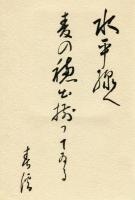 水平線へ
麦の穂出揃つてゐる
青溪